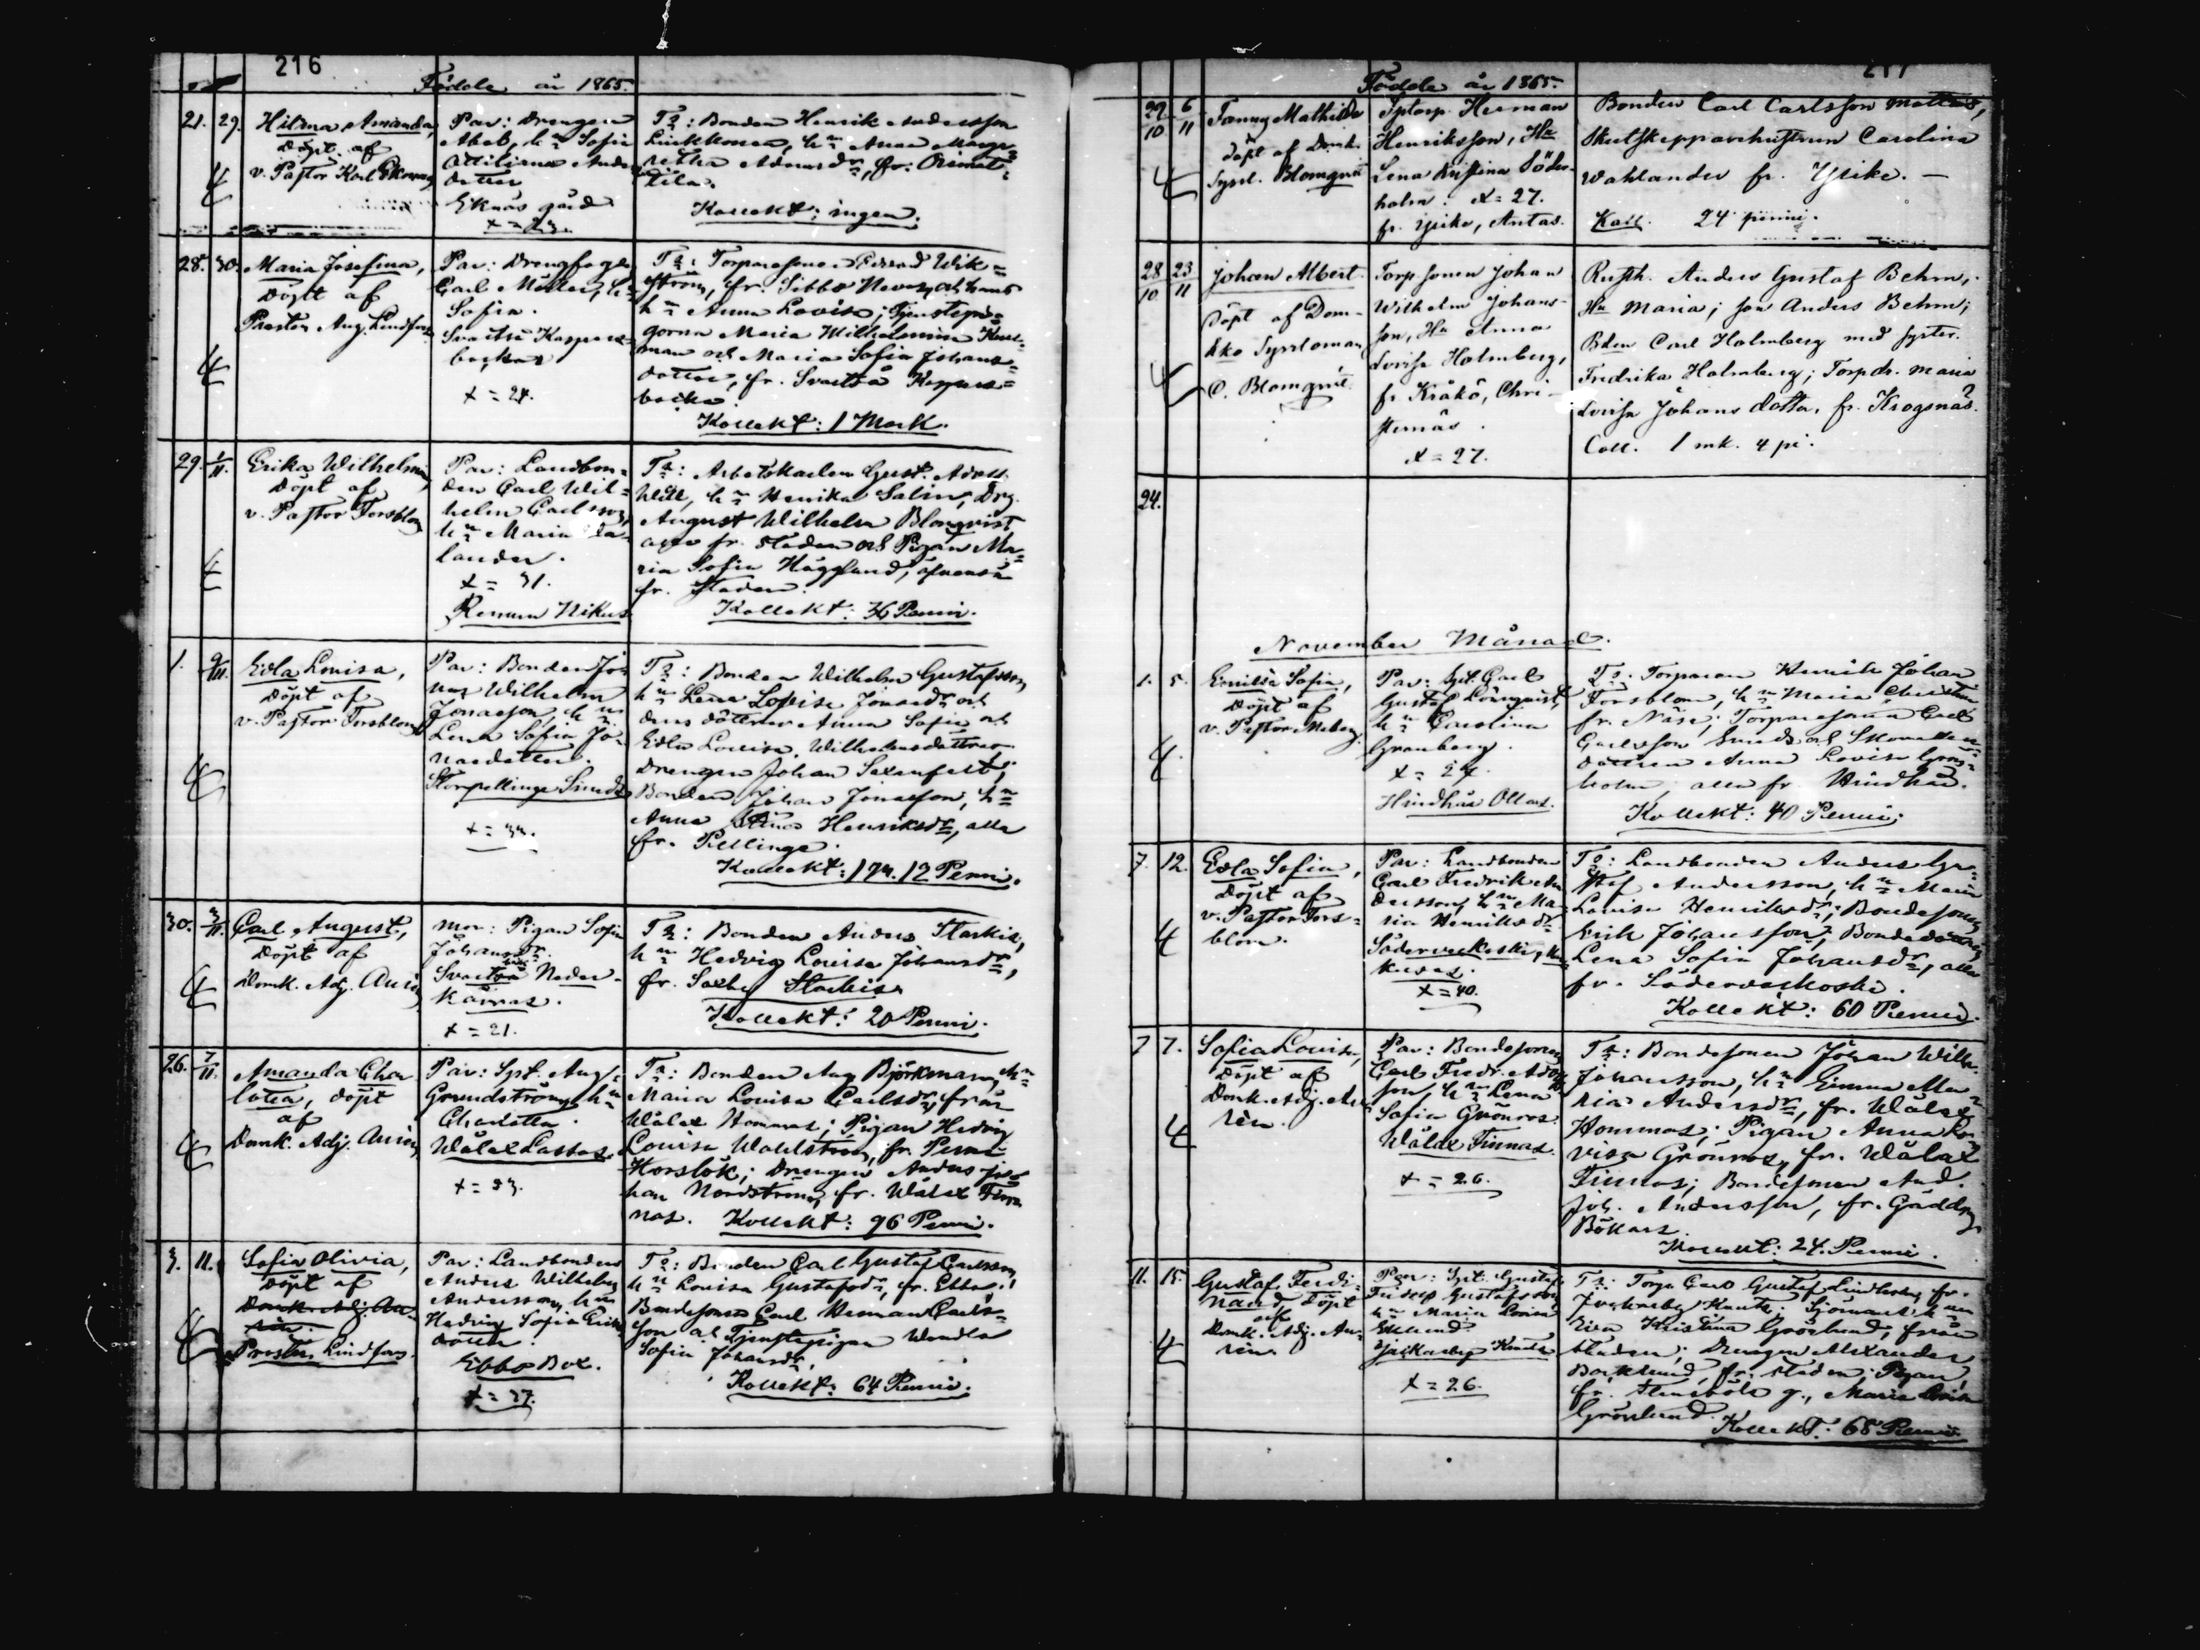 216
Födde år 1865.
21. 29. Hilma Amanda,
Döpt af
v. Pastor Karl
Par: Drengen
Abel, hn Sofia
dotter
Eknäs gård
Tr: Bonden Henrik Andersson
hn Anna Marga=
retha
Kollekt: ingen.
28. 30. Maria Josefina,
Döpt af
Prosten Aug. Lindfors
Par: Drengfogden
Carl Möller, hn
Sofia.
Svartså Kaspers=
backa
x = 24.
Tr: Torparesonen Edvard Wik=
ström, fr. Sibbo
hn Anna Lovisa; Tjenstepi=
gorna Maria Wilhelmina
man och Maria Sofia Johans=
dotter, fr. Svartså Kaspers=
backa.
Kollekt: 1 Mark.
29. 1/11. Erika Wilhelmina,
Döpt af
v. Pastor Forsblom
Par: Landbon=
den Carl Wil=
helm Carlsson,
hn Maria
lander.
x = 31.
Tr: Arbetskarlen Gust. Adolf
hn Henrika Salin, Drg.
August Wilhelm Blomqvist
fr. staden och Pigan Ma=
ria Sofia Hägglund, äfvenså
fr. staden.
Kollekt: 36 Penni.
1. 9/11. Edla Lovisa,
Döpt af
v. Pastor Forsblom
Par: Bonden Jo=
nas Wilhelm
Jonasson, hn
Lena Sofia Jo=
nasdotter.
Storpellinge Sunds
x = 34.
Tr: Bonden Wilhelm Gustafsson,
hn Lena Lovisa Jonasdr och
dess döttrar Anna Sofia och
Edla Lovisa Wilhelmsdöttrar
Drengen Johan
Bonden Johan Jonasson, hn
Anna Stina Henriksdr, alla
fr. Pellinge.
Kollekt: 1 m. 12 Penni.
30. 3/11. Carl August,
Döpt af
Domk. Adj. Aurén
Mor: Pigan Sofia
Johansdr.
Svartså Neder-
x = 21.
Tr: Bonden Anders Starkis,
hn Hedvig Lovisa Johansdr,
fr. Saxby Starkis.
Kollekt: 20 Penni.
26. 7/11. Amanda Char
lotta, döpt
af
Domk. Adj. Aurén
Par: Spt. Aug.
Grundström, hn
Charlotta.
Wålax Lassas
x = 33.
Tr: Bonden Aug Björkman, hn
Maria Lovisa Carlsdr, från
Wålax Hommas; Pigan Hedvig
Lovisa Wahlström, fr. Perno
Horslök; Drengen Anders Jo=
han Nordström, fr. Wålax Fin
nas. Kollekt: 96 Penni.
3. 11. Sofia Olivia,
Döpt af
Domk. Adj. Au=
rén.
Prosten Lindfors.
Par: Landbonden
Anders Wilhelm
Andersson, hn
Hedvig Sofia Eriks
dotter.
Ebbo Box.
x = 37.
Tr: Bonden Carl Gustaf Carlsson,
hn Lovisa Gustafsdr, fr. Ebbo;
Bondesonen Carl Herman Carls=
son och Tjenstepigan Wendla
Sofia Johansdr,
Kollekt: 64 Penni.
217
Födde år 1865.
29/10 6/11 Fanny Mathilda
döpt af Domk.
Syssl. Blomqvist
Sptorp. Herman
Henriksson, Hu
Lena Kristina Söder-
holm. x = 27.
fr. Ysike, Antas.
Bonden Carl Carlsson Mattas,
Skutskepparehustrun Carolina
Wahlander fr. Ysike. —
Koll. 24 penni.
28/10 23/11 Johan Albert.
Döpt af Dom-
kko Syssloman
O. Blomqvist
Torp. sonen Johan
Wilhelm Johans-
son, Hu Anna
Lovisa Holmberg,
fr Kråkö, Chri-
sternäs.
x = 27.
Rusth. Anders Gustaf Behm,
Hu Maria; son Anders Behm;
Bden Carl Holmberg med syster.
Fredrika Holmberg; Torpdr. Maria
Lovisa Johans dotter, fr. Krogsnäs.
Coll. 1 mk. 4 pi.
24.
November Månad.
1. 5. Emilia Sofia,
Döpt af
v. Pastor Moberg.
Par: Spt. Carl
Gustaf Lönnqvist,
hn Carolina
Granberg.
x = 24.
Hindhår Ollas.
Tr: Torparen Henrik Johan
Forsblom, hn Maria Christina
fr. Näse; Torparesonen Carl
Carlsson Sund och
dottren Anna Lovisa Grön=
holm, alla fr. Hindhår.
Kollekt: 40 Penni.
7. 12. Edla Sofia,
Döpt af
v. Pastor Fors=
blom.
Par: Landbonden
Carl Fredrik An
dersson, hn Ma=
ria Henriksdr
Söderveckoski,
x = 40.
Tr: Landbonden Anders Gu=
staf Andersson, hn Maria
Lovisa Henriksdr; Bondesonen
Erik Johansson, Bondedottren
Lena Sofia Johansdr, alla
fr. Söderveckoski.
Kollekt: 60 Penni.
7 7. Sofia Lovisa,
Döpt af
Domk. Adj. Au
rén.
Par: Bondesonen
Carl Fredr. Adolfs
son, hn Lena
Sofia Grönroos.
Wålax Finnas.
x = 26.
Tr: Bondesonen Johan Wilh.
Johansson, hn Emma Ma
ria Andersdr, fr. Wålax
Hommas; Pigan Anna Lo=
visa Grönroos, fr. Wålax
Finnas; Bondesonen And.
Joh. Andersson, fr. Gäddrag
Böckars.
Kollekt: 24. Penni.
11. 15. Gustaf Ferdi=
nand, Döpt
af
Domk. Adj. Au=
rén
Par: Spt. Gustaf
Fridolf Gustafsson,
hn Maria Lovisa
Eklund.
Jackarby Knuts
x = 26.
Tr: Torp. Carl Gustaf Lindberg, fr.
Jackarby Knuts; Sjöman
Eva Kristina Grönlund, från
staden; Drengen Alexander
Backlund, fr. staden; Pigan
fr. Stensböle g., Maria Lovisa
Grönlund.
Kollekt: 68 Penni.